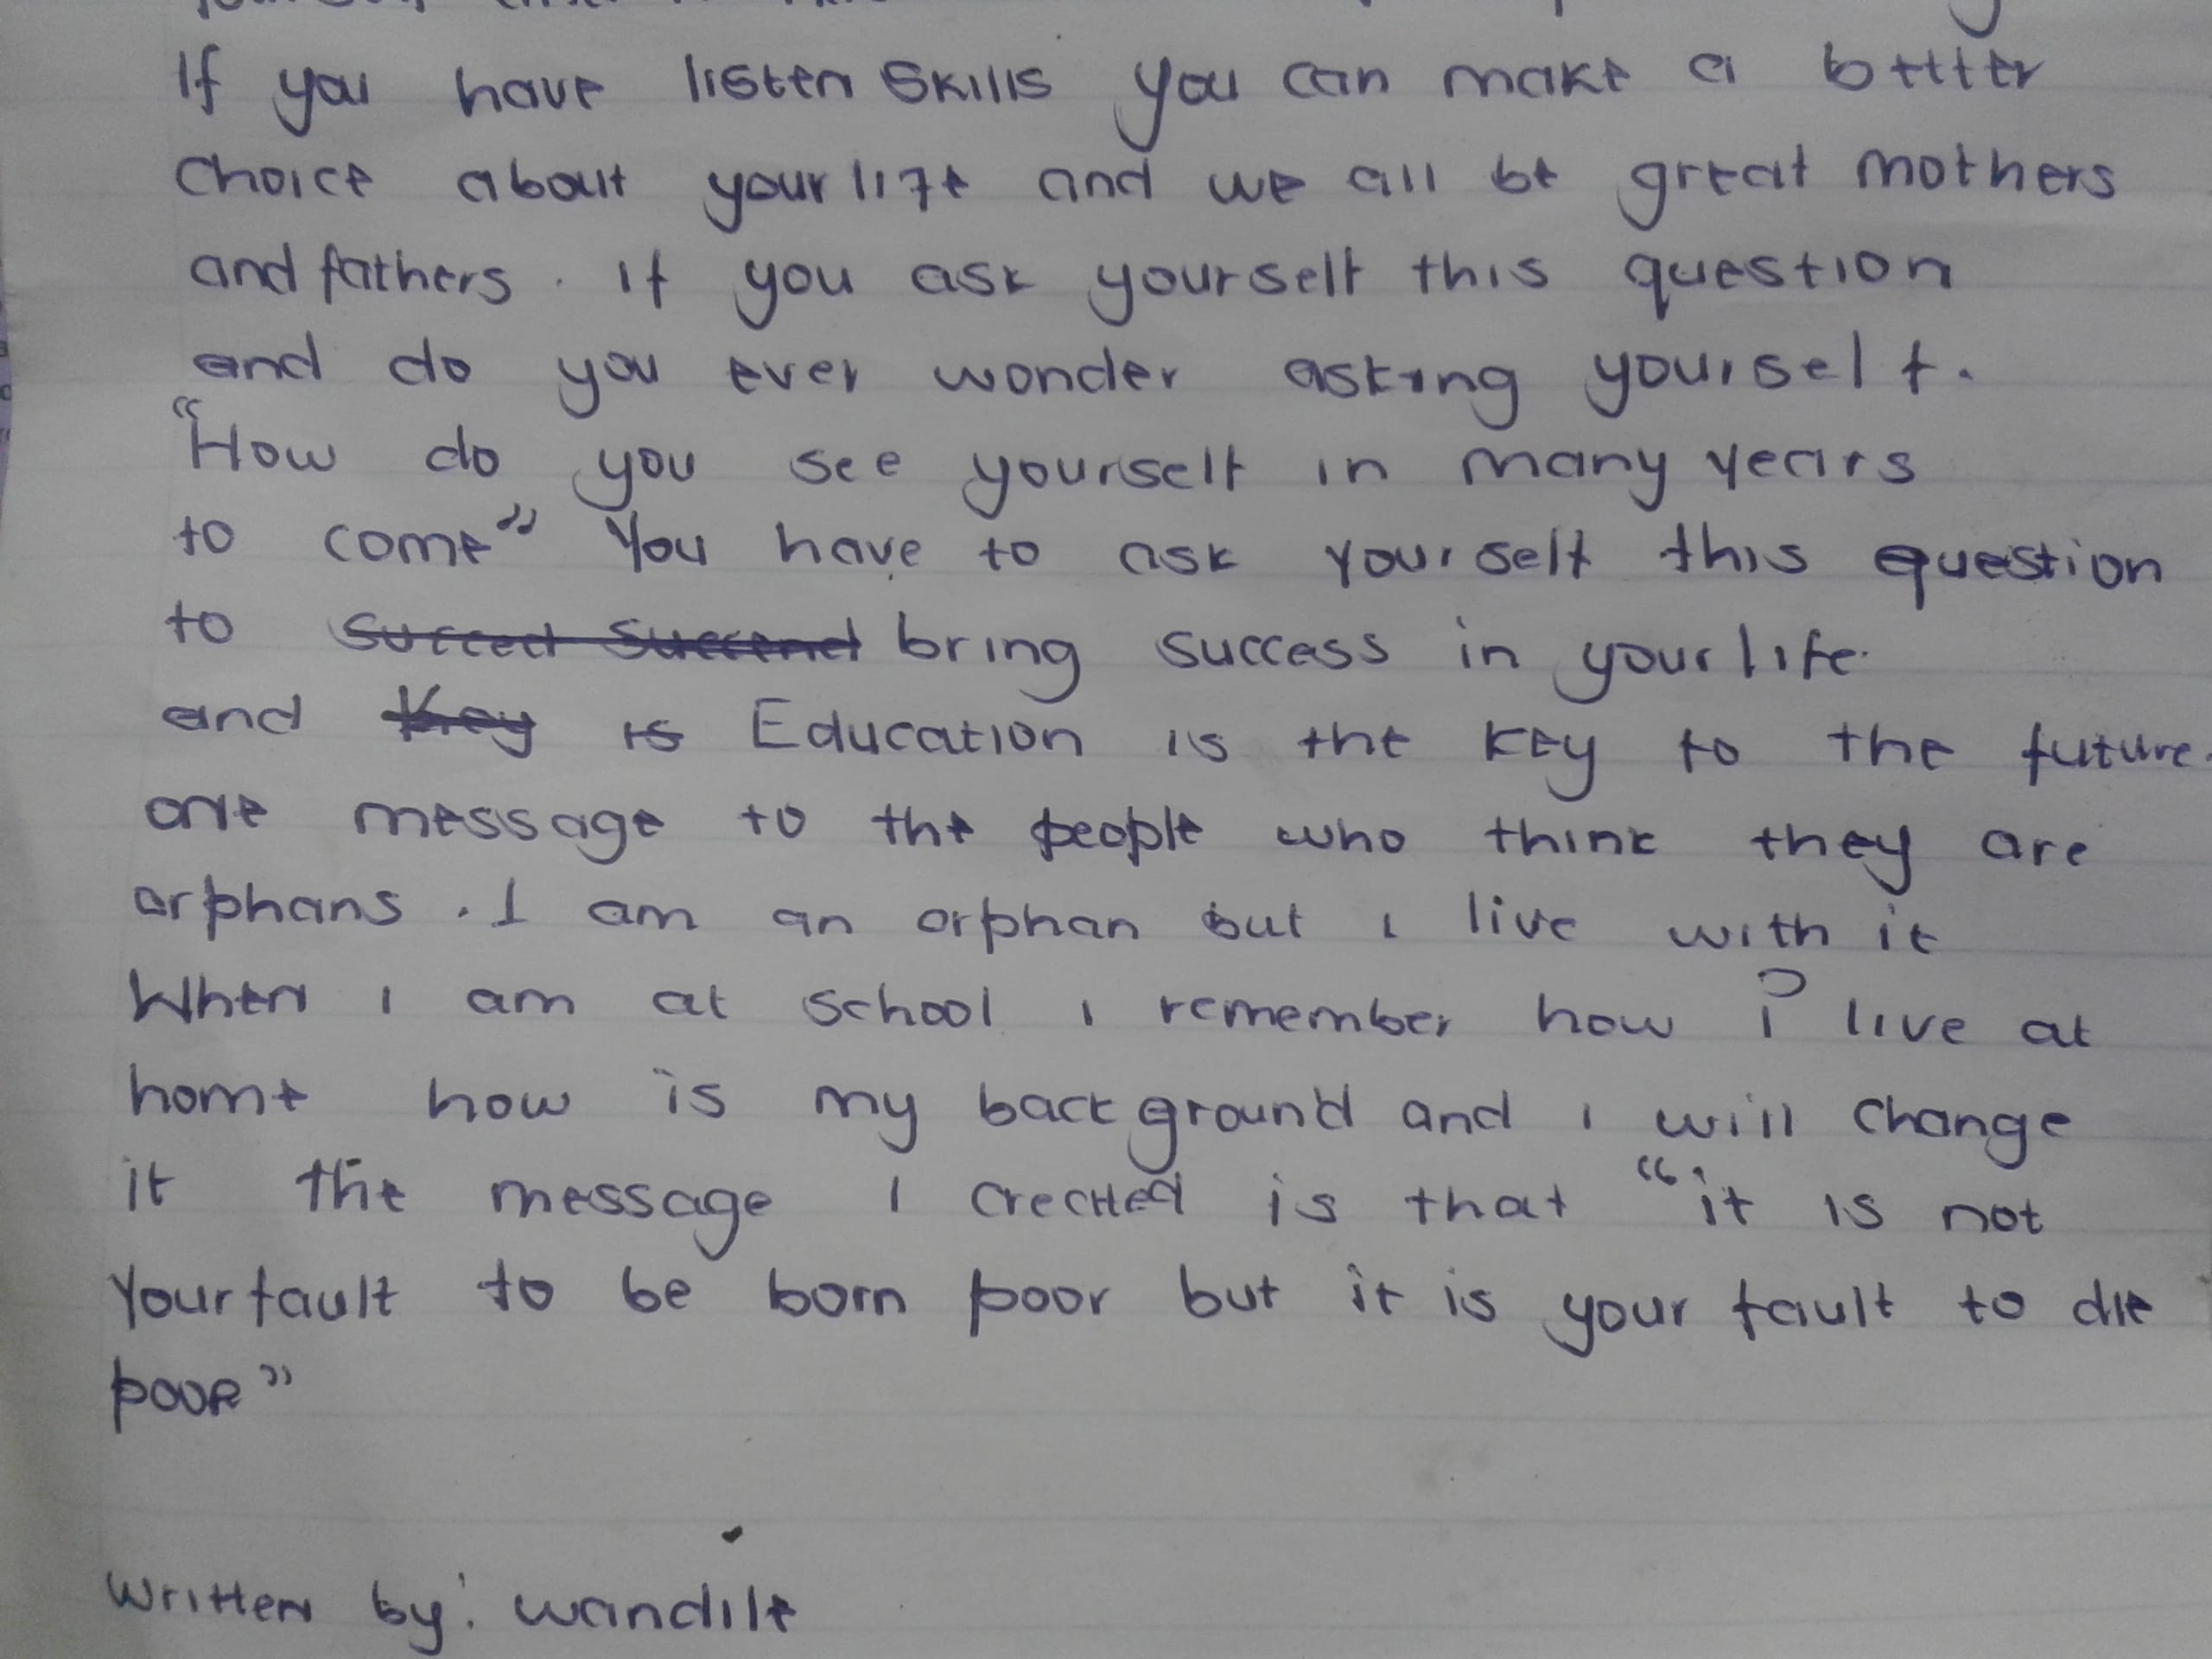 If you have listen skills you can make a better
choice about your life and we all be great mothers
and fathers. if you ask yourself this question
and do you ever wonder asking yourself.
"How do you see yourself in many years
to come" You have to ask yourself this question
to bring success in your life.
and Key is Education is the key to the future.
one message to the people who think they are
orphans. I am an orphan but i live with it
When i am at school i remember how i live at
home how is my background and i will change
it the message I created is that "it is not
Your fault to be born poor but it is your fault to die
poor"
Written by: wandile